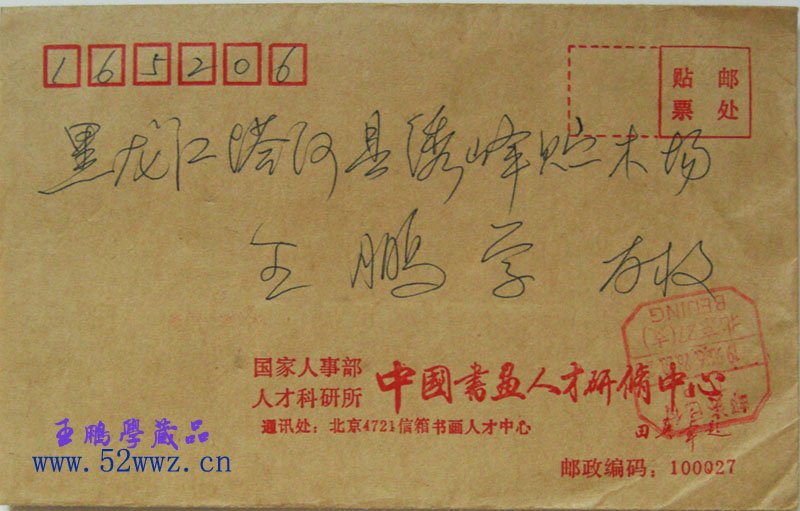 165206
贴 邮
票 处
黑龙江塔河县秀峰贮木场
王鹏学 友收
国家人事部
人才科研所 中國書畫人才研脩中心
通讯处：北京4721信箱书画人才中心
BEIJING
王鵬學藏品
www.52wwz.cn
邮政编码：100027